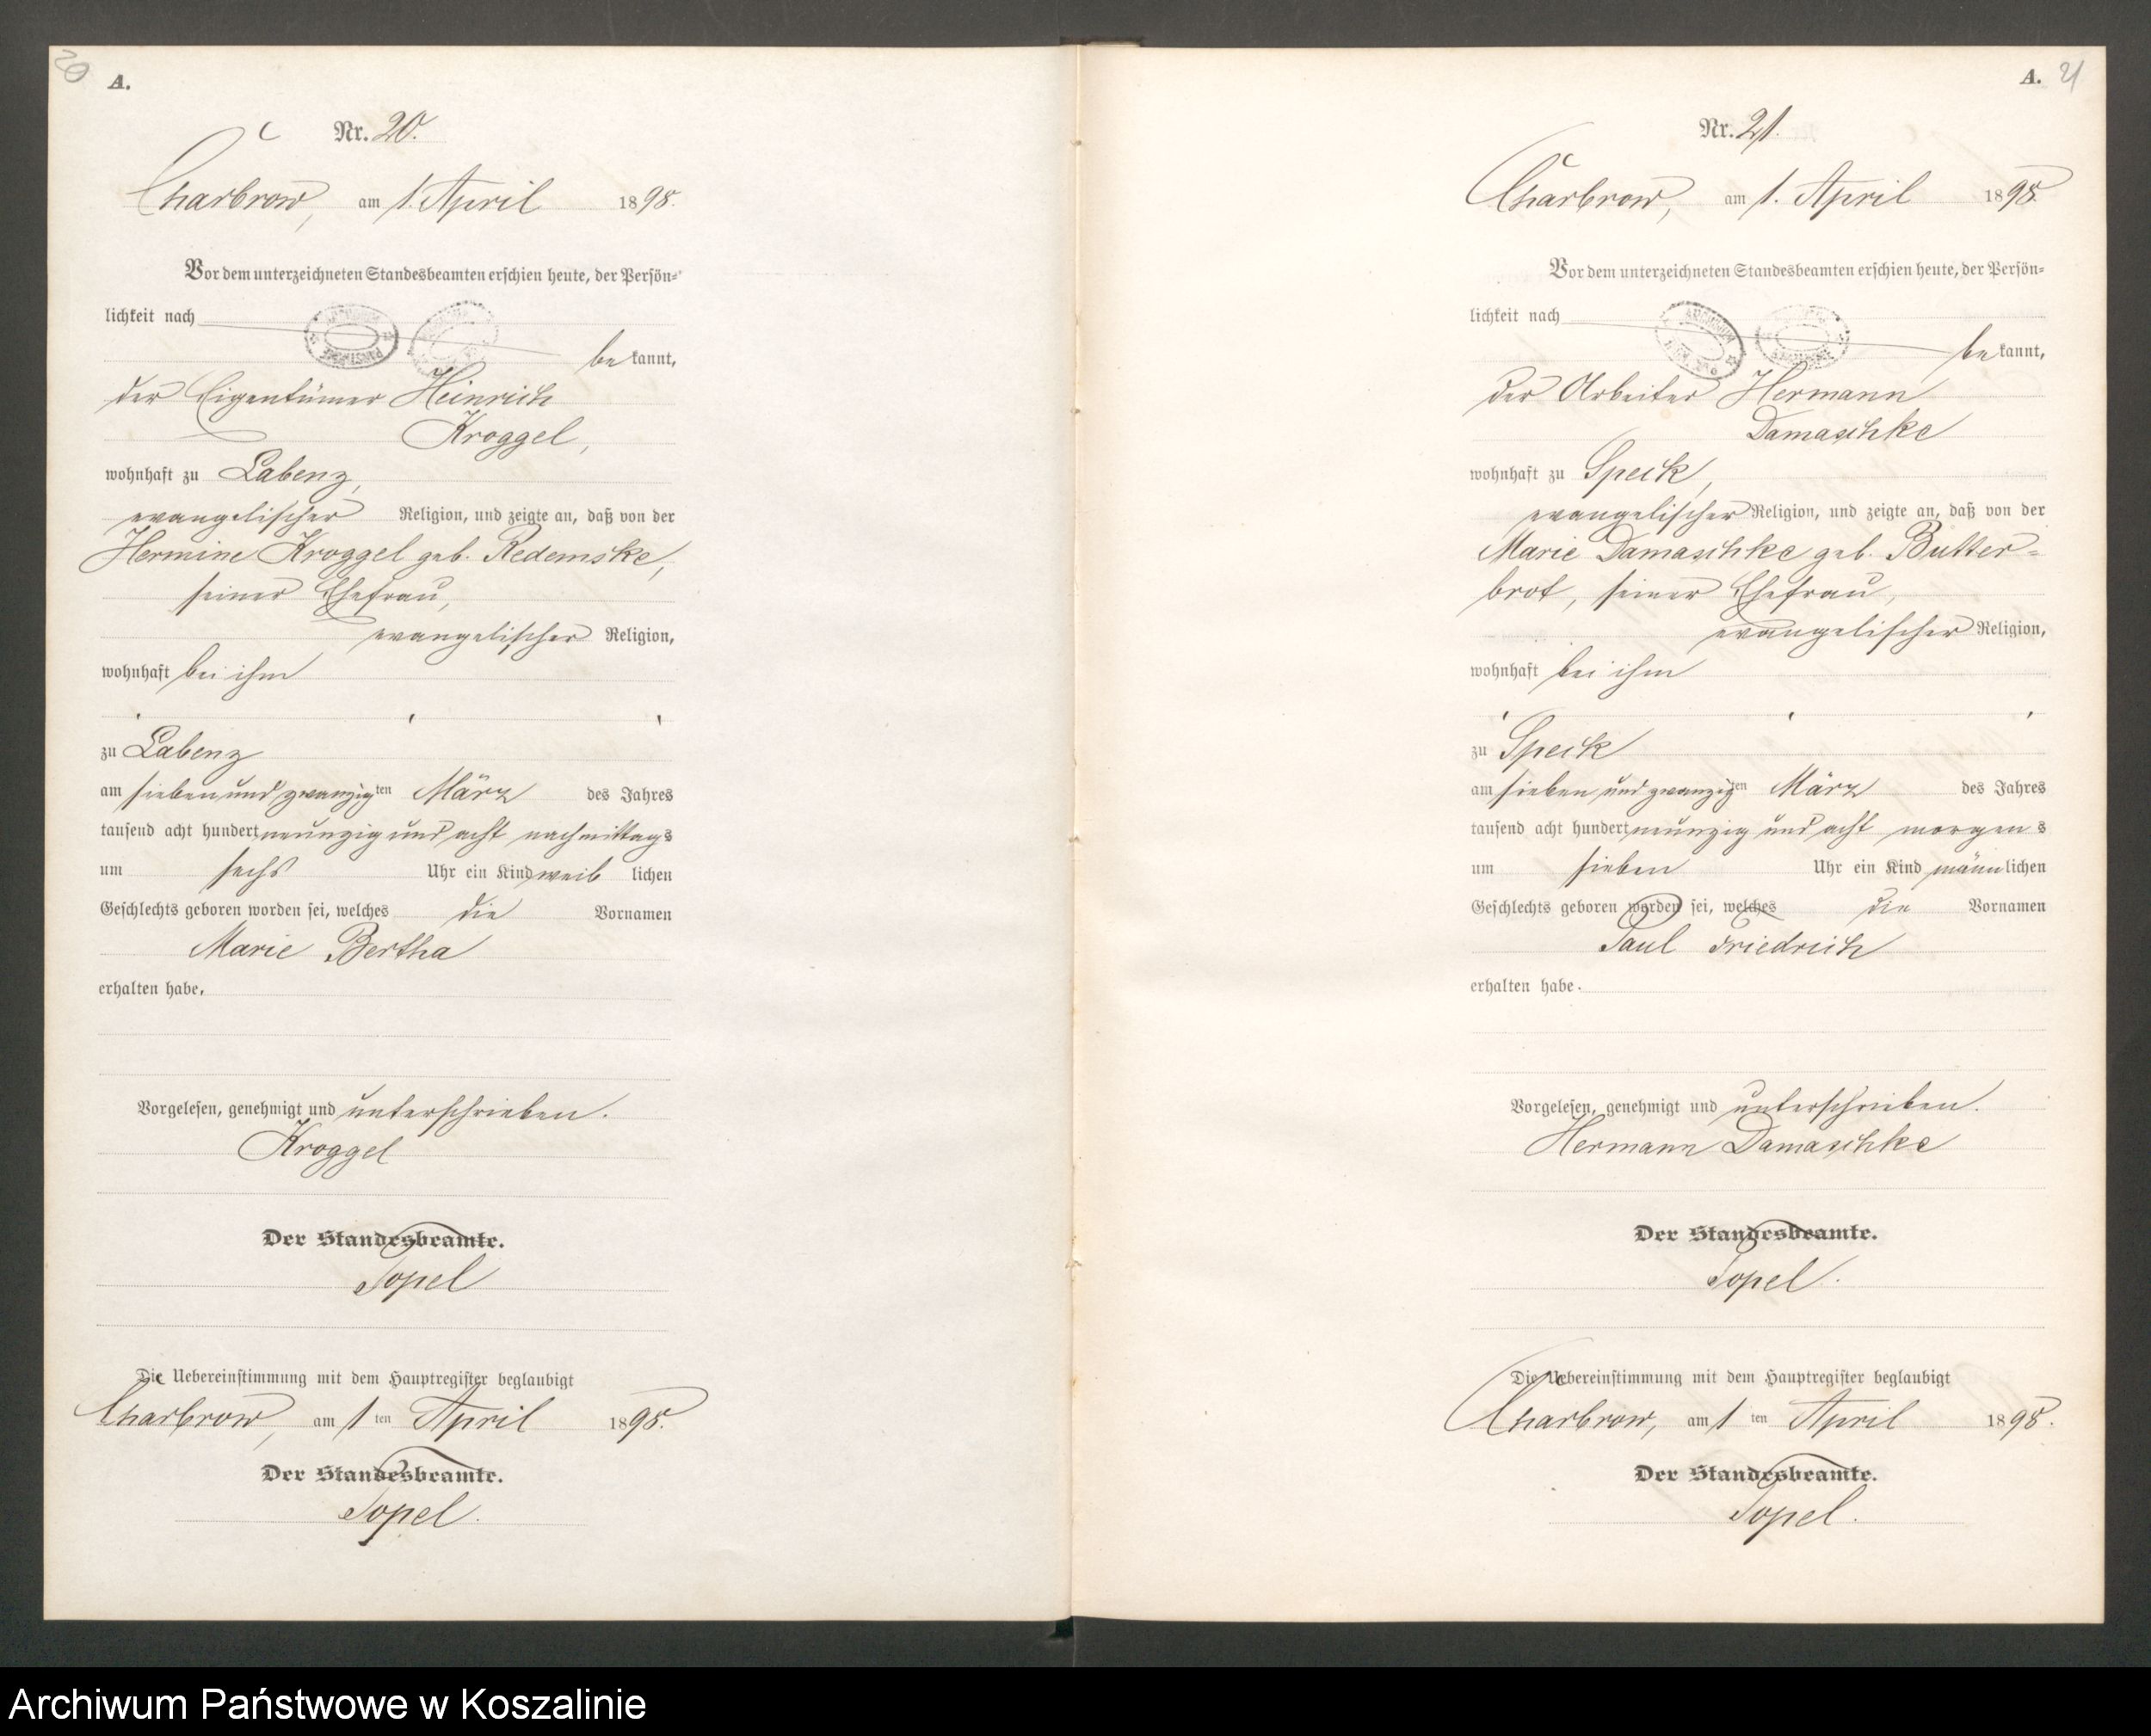 20
A.
Nr. 20.
Charbrow, am 1. April 1898.
Vor dem unterzeichneten Standesbeamten erschien heute, der Persön=
lichkeit nach
be kannt,
der Eigentümer Heinrich
Kroggel,
wohnhaft zu Labenz,
evangelischer Religion, und zeigte an, daß von der
Hermine Kroggel geb. Redemske,
seiner Ehefrau,
evangelischer Religion,
wohnhaft bei ihm
zu Labenz
am sieben und zwanzig ten März des Jahres
tausend acht hundert neunzig und acht nachmittags
um sechs Uhr ein Kind weib lichen
Geschlechts geboren worden sei, welches die Vornamen
Marie Bertha
erhalten habe.
Vorgelesen, genehmigt und unterschrieben.
Kroggel
Der Standesbeamte.
Topel
Die Uebereinstimmung mit dem Hauptregister beglaubigt
Charbrow, am 1 ten April 1898.
Der Standesbeamte.
Topel.
A. 21
Nr. 21.
Charbrow, am 1. April 1898.
Vor dem unterzeichneten Standesbeamten erschien heute, der Persön=
lichkeit nach
be kannt,
der Arbeiter Hermann
Damaschke
wohnhaft zu Speck,
evangelischer Religion, und zeigte an, daß von der
Marie Damaschke geb. Butter=
brot, seiner Ehefrau,
evangelischer Religion,
wohnhaft bei ihm
zu Speck
am sieben und zwanzig ten März des Jahres
tausend acht hundert neunzig und acht morgens
um sieben Uhr ein Kind männlichen
Geschlechts geboren worden sei, welches die Vornamen
Paul Friedrich
erhalten habe.
Vorgelesen, genehmigt und unterschrieben.
Hermann Damaschke
Der Standesbeamte.
Topel.
Die Uebereinstimmung mit dem Hauptregister beglaubigt
Charbrow, am 1 ten April 1898.
Der Standesbeamte.
Topel.
Archiwum Państwowe w Koszalinie